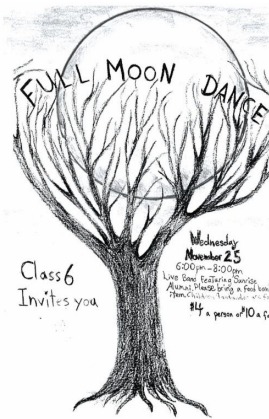 FULL MOON DANCE
Class 6
Invites you
Wednesday
November 25
6:00pm-8:00pm
Live Band Featuring Sunrise
Alumni. Please bring a food bank
item. Children
$4 a person or $10 a